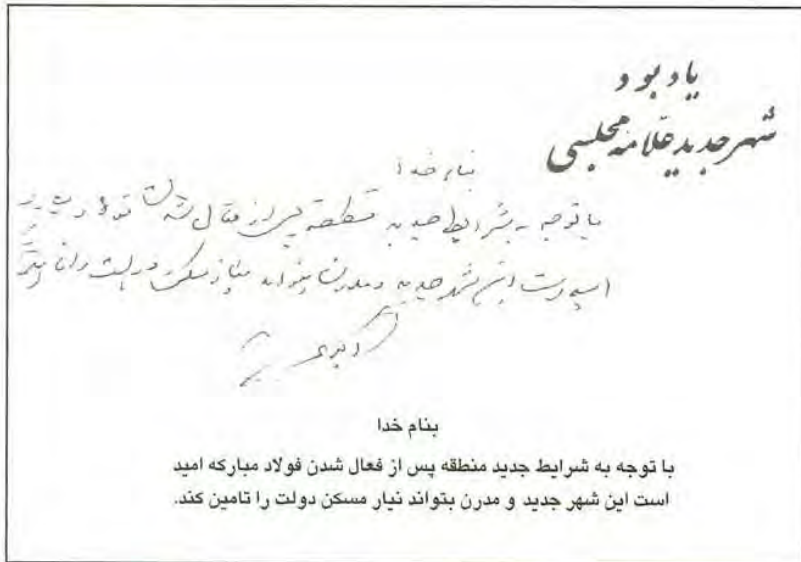 یادبود
شهر جدید علامه مجلسی
بنام خدا
با توجه به شرایط جدید منطقه پس از فعال شدن فولاد
است این شهر جدید و مدرن بتواند نیاز مسکن دولت را تامین کند
بنام خدا
با توجه به شرایط جدید منطقه پس از فعال شدن فولاد مبارکه امید
است این شهر جدید و مدرن بتواند نیار مسکن دولت را تامین کند.